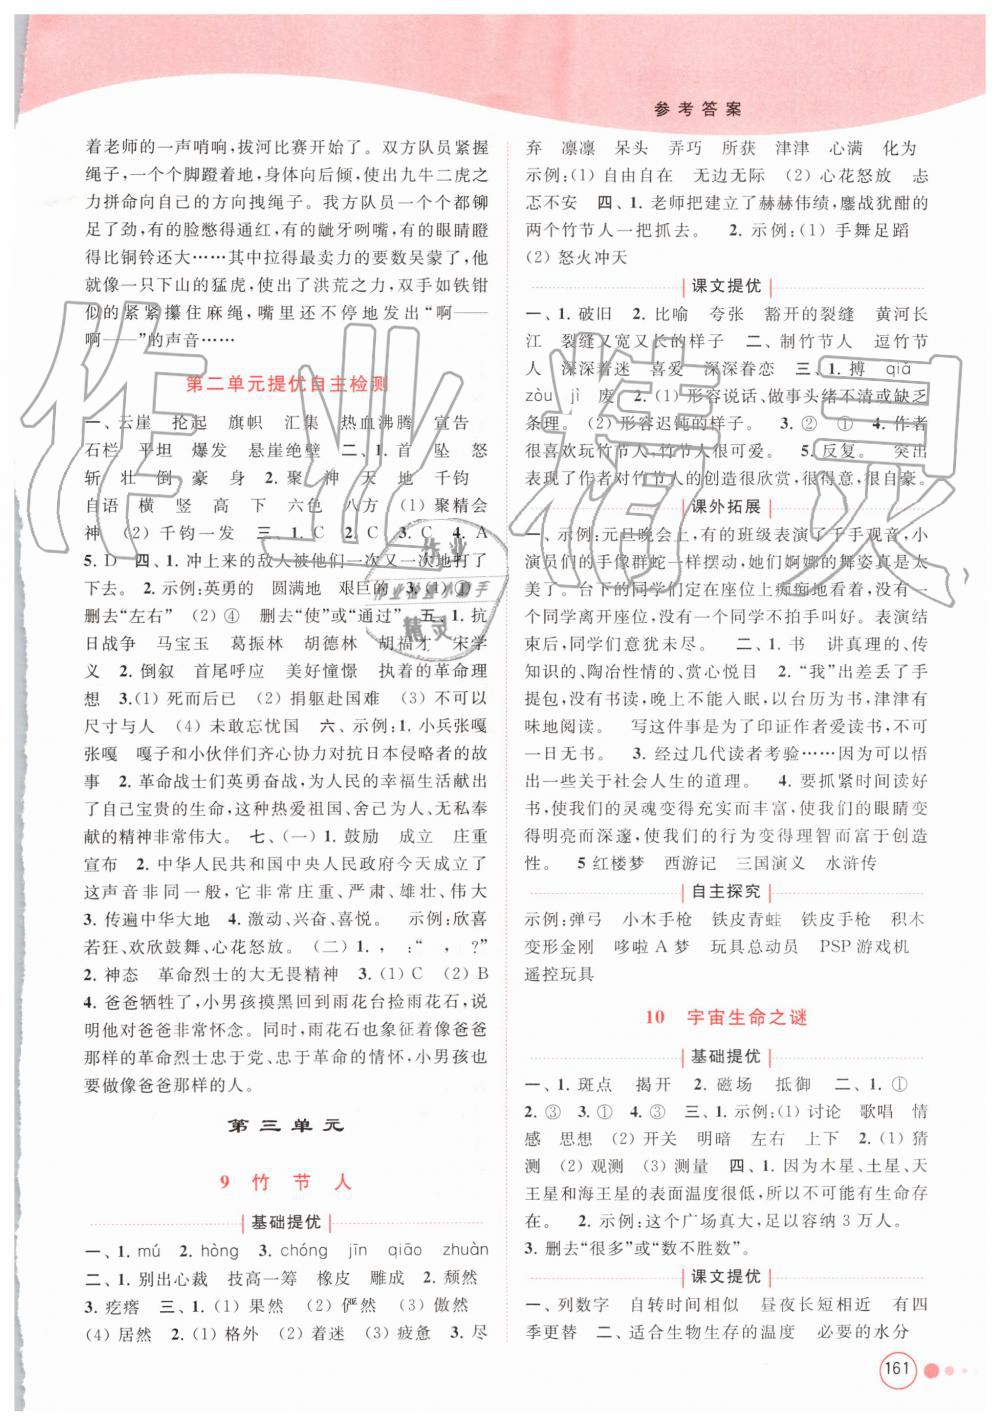 参考答案
着老师的一声哨响，拔河比赛开始了。双方队员紧握
绳子，一个个脚蹬着地，身体向后倾，使出九牛二虎之
力拼命向自己的方向拽绳子。我方队员一个个都铆
足了劲，有的脸憋得通红，有的龇牙咧嘴，有的眼睛瞪
得比铜铃还大……其中拉得最卖力的要数吴蒙了，他
就像一只下山的猛虎，使出了洪荒之力，双手如铁钳
似的紧紧攥住麻绳，嘴里还不停地发出“啊——
啊——”的声音……
第二单元提优自主检测
一、云崖　抡起　旗帜　汇集　热血沸腾　宣告
石栏　平坦　爆发　悬崖绝壁　二、1. 首　坠　怒
斩　壮　倒　豪　身　2. 聚　沉　武　地　大　千钧
自语　横　竖　高　下　六色　八方　(1) 聚精会
神　(2) 千钧一发　三、1. C　2. C　3. C　4. A
5. D　四、1. 冲上来的敌人被他们一次又一次地打了
下去。　2. 示例:英勇的　圆满地　艰巨的　3. (1) ①
删去“左右”　(2) ④　删去“使”或“通过”　五、1. 抗
日战争　马宝玉　葛振林　胡德林　胡福才　宋学
义　2. 倒叙　首尾呼应　美好憧憬　执着的革命理
想　3.(1) 死而后已　(2) 捐躯赴国难　(3) 不可以
尺寸与人　(4) 未敢忘忧国　六、示例:1. 小兵张嘎
张嘎　嘎子和小伙伴们齐心协力对抗日本侵略者的故
事　2. 革命战士们英勇奋战,为我们的幸福生活献出
了自己宝贵的生命,这种热爱祖国、不怕牺牲、无私奉
献的精神非常伟大。　七、(一) 1. 鼓励　成立　庄重
宣布　2. 中华人民共和国中央人民政府今天成立了
这声音非同一般,它是那样庄严、严肃、雄壮、有力量
3. 传遍中华大地　4. 激动、兴奋、喜悦。　示例:欣喜
若狂、欢欣鼓舞、心花怒放。　(二) 1. ，　：“　，　?”
2. 神态　革命烈士的大无畏精神　3. (1) C　(2) B
4. 爸爸牺牲了,小男孩摸黑回到雨花台捡雨花石,说
明他对爸爸非常怀念。同时,雨花石也象征着像爸爸
那样的革命烈士忠于党、忠于革命的情怀,小男孩也
要做像爸爸那样的人。
第三单元
9　竹节人
基础提优
一、1. mú　2. hòng　3. chóng　jīn　qiāo　zhuàn
二、1. 别出心裁　技高一筹　橡皮　雕成　2. 颓然
3. 疙瘩　三、1. (1) 果然　(2) 俨然　(3) 傲然
(4) 居然　2. (1) 格外　(2) 着迷　(3) 疲惫　3. 尽
弃　凛凛　呆头　弄巧　所获　津津　心满　化为
示例:(1) 自由自在　无边无际　(2) 心花怒放　忐
忑不安　四、1. 老师把建立了赫赫伟绩,鏖战犹酣的
两个竹节人一把抓去。　2. 示例:(1) 手舞足蹈
(2) 怒火冲天
课文提优
一、1. 破旧　2. 比喻　夸张　豁开的裂缝　黄河长
江　裂缝又宽又长的样子　二、制竹节人　逗竹节
人　深深着迷　喜爱　深深眷恋　三、1. 搏　qiǎ
zòu　jì　废　2. (1) 形容说话、做事没头绪或缺乏
条理。　(2) 形容迟钝的样子。　3. ②　①　4. 作者
很喜欢玩竹节人,竹节人很可爱。　5. 反复。　突出
表现了作者对竹节人的创造很欣赏,很喜欢,很自豪。
课外拓展
一、示例:元旦晚会上,有的班级表演了千手观音,小
演员们的手像群蛇一样摆动,她们婀娜的舞姿真是太
美了。台下的小同学们在座位上痴痴地看着,没有一
个同学离开座位,没有一个同学不拍手叫好。表演结
束后,同学们意犹未尽。　二、1. 书　讲真理的、传
知识的、陶冶性情的、赏心悦目　2. “我”出差丢了手
提包,没有书读,晚上不能入眠,以台历为书,津津有
味地阅读。　写这件事是为了印证作者爱读书,不可
一日无书。　3. 经过几代读者考验……因为可以悟
出一些关于社会人生的道理。　4. 要抓紧时间读好
书,使我们的灵魂变得充实而丰富,使我们的眼睛变
得明亮而深邃,使我们的行为变得理智而富于创造
性。　5 红楼梦　西游记　三国演义　水浒传
自主探究
示例:弹弓　小木手枪　铁皮青蛙　铁皮手枪　积木
变形金刚　哆啦A梦　玩具总动员　PSP游戏机
遥控玩具
10　宇宙生命之谜
基础提优
一、1. 斑点　揭开　2. 磁场　抵御　二、1. ①
2. ③　3. ①　4. ③　三、1. 示例:(1) 讨论　歌唱　情
感　思想　(2) 开关　明暗　左右　上下　2. (1) 猜
测　(2) 观测　(3) 测量　四、1. 因为木星、土星、天
王星和海王星的表面温度很低,所以不可能有生命存
在。　2. 示例:这个广场真大,足以容纳3万人。
3. 删去“很多”或“数不胜数”。
课文提优
一、列数字　自转时间相似　昼夜长短相近　有四
季更替　二、适合生物生存的温度　必要的水分
161
作业精灵